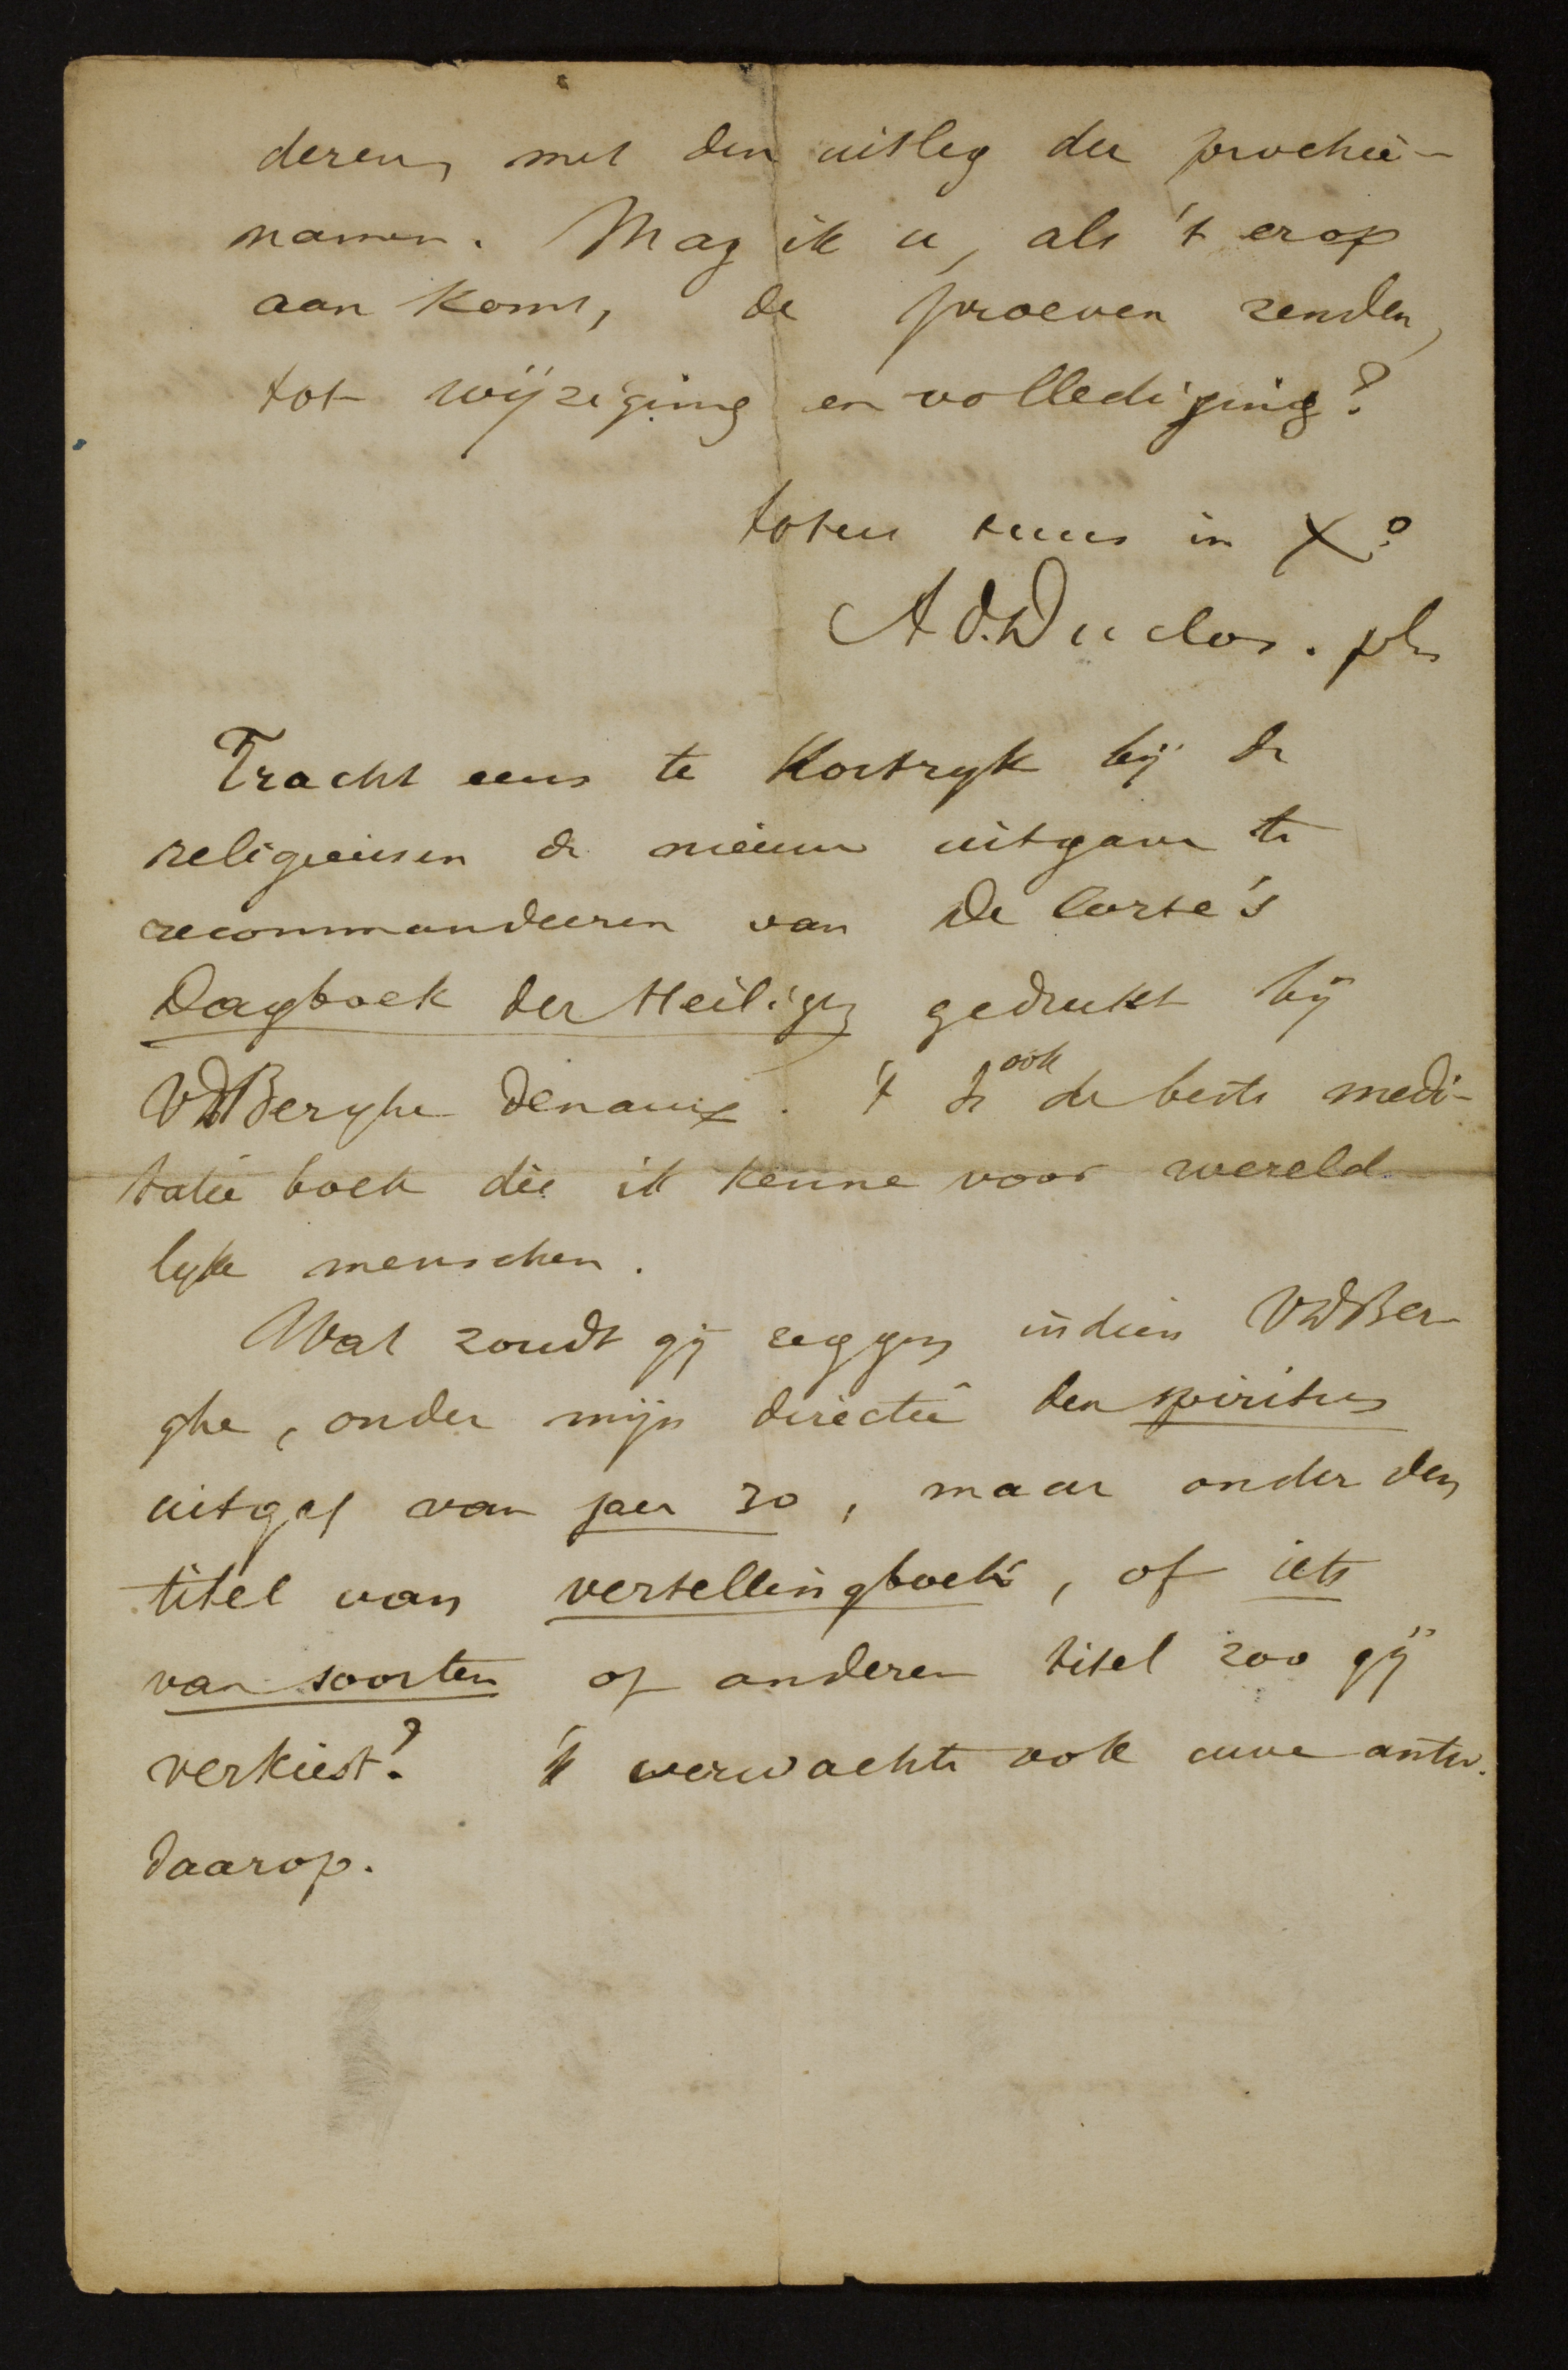 deren, met den uitleg der prochie-
namen. Mag ik u, als 't erop
aan komt, de proeven zenden,
tot wijziging en vollediging?
totus tuus in Xº
Ad. Duclos. pbr
Tracht eens te Kortryk bij de
religieusen de nieuwe uitgave te
recommandeeren van De Corte's
Dagboek der Heiligen gedrukt bij
VdBerghe Denaux. 't Is ook de beste medi-
tatie boek die ik kenne voor wereld
lyke menschen.
Wat zoudt gij zeggen indien VdBer-
ghe, onder mijn directie den spiritus
uitgaf van jaer 30, maar onder den
titel van vertellingboek, of iets
van soorten of anderen titel zoo gij
verkiest? 'k verwachte ook uwe antw.
daarop.